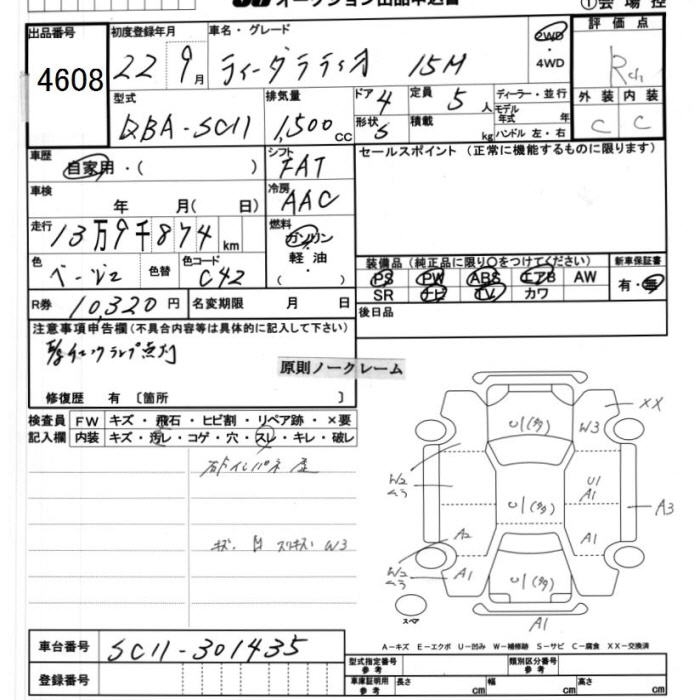 オークション出品申込書
①会場控
出品番号
4608
初度登録年月
22 9月
車名・グレード
ティーダラティオ 15M
2WD
・4WD
評価点
型式
DBA-SC11
排気量
1,500cc
ドア
4
形状
S
定員
5人
積載
kg
ディーラー・並行
モデル年式 年
ハンドル 左・右
外装 内装
C C
車歴
自家用・( )
シフト
FAT
セールスポイント(正常に機能するものに限ります)
車検
年 月( 日)
冷房
AAC
走行
13万9千874km
燃料
ガソリン
・
軽油
・
( )
色
ベージュ
色替
色コード
C42
装備品(純正品に限り○をつけてください)
PS PW ABS エアB AW
SR ナビ TV カワ
新車保証書
有・無
R券 10,320円
名変期限 月 日
後日品
注意事項申告欄(不具合内容等は具体的に記入して下さい)
チェックランプ点灯
原則ノークレーム
修復歴 有〔箇所 〕
検査員記入欄
FW キズ・飛石・ヒビ割・リペア跡・×要
内装 キズ・汚レ・コゲ・穴・スレ・キレ・破レ
キズ・凹 スリキズ W3
U1(多)
W3
XX
W2
U1(多)
U1
A1
A3
A2
A1
W2
A1
U1(多)
スペア
A1
A-キズ E-エクボ U-凹み W-補修跡 S-サビ C-腐食 XX-交換済
車台番号 SC11-301435
登録番号
型式指定番号
類別区分番号
車庫証明用参考
長さ cm
幅 cm
高さ cm